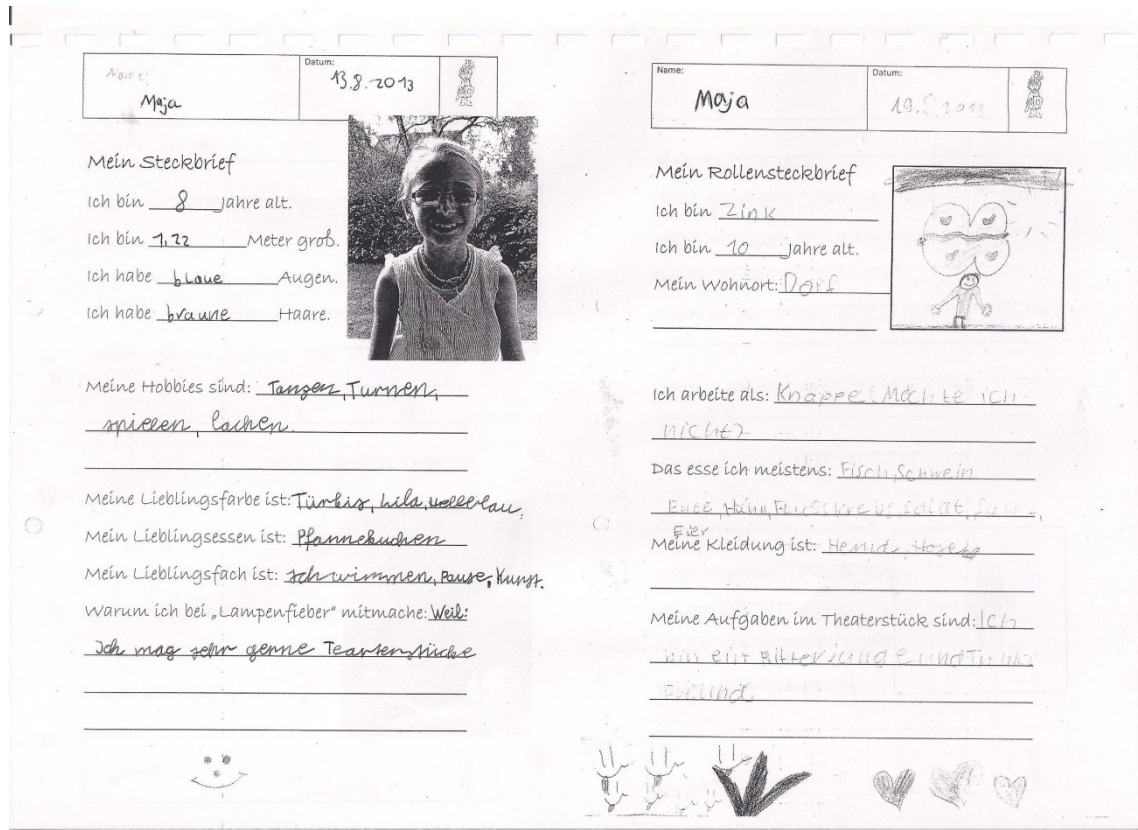 Name:
Maja
Datum:
13.8.2013
Mein Steckbrief
Ich bin 8 Jahre alt.
Ich bin 1,22 Meter groß.
Ich habe blaue Augen.
Ich habe braune Haare.
Meine Hobbies sind: Tanzen, Turnen,
spielen, lachen.
Meine Lieblingsfarbe ist: Türkis, Lila,
Mein Lieblingsessen ist: Pfannekuchen
Mein Lieblingsfach ist: schwimmen, Pause, Kunst.
Warum ich bei „Lampenfieber“ mitmache: Weil:
Ich mag sehr gerne
Name:
Maja
Datum:
Mein Rollensteckbrief
Ich bin Zink
Ich bin 10 Jahre alt.
Mein Wohnort: Dorf
Ich arbeite als: Knappe (Möchte ich
nicht)
Das esse ich meistens: Fisch, Schwein
Ente, Huhn, Flusskrebs,
Eier
Meine Kleidung ist: Hemd, Hose
Meine Aufgaben im Theaterstück sind: Ich
bin ein Ritterjunge und
Freund.